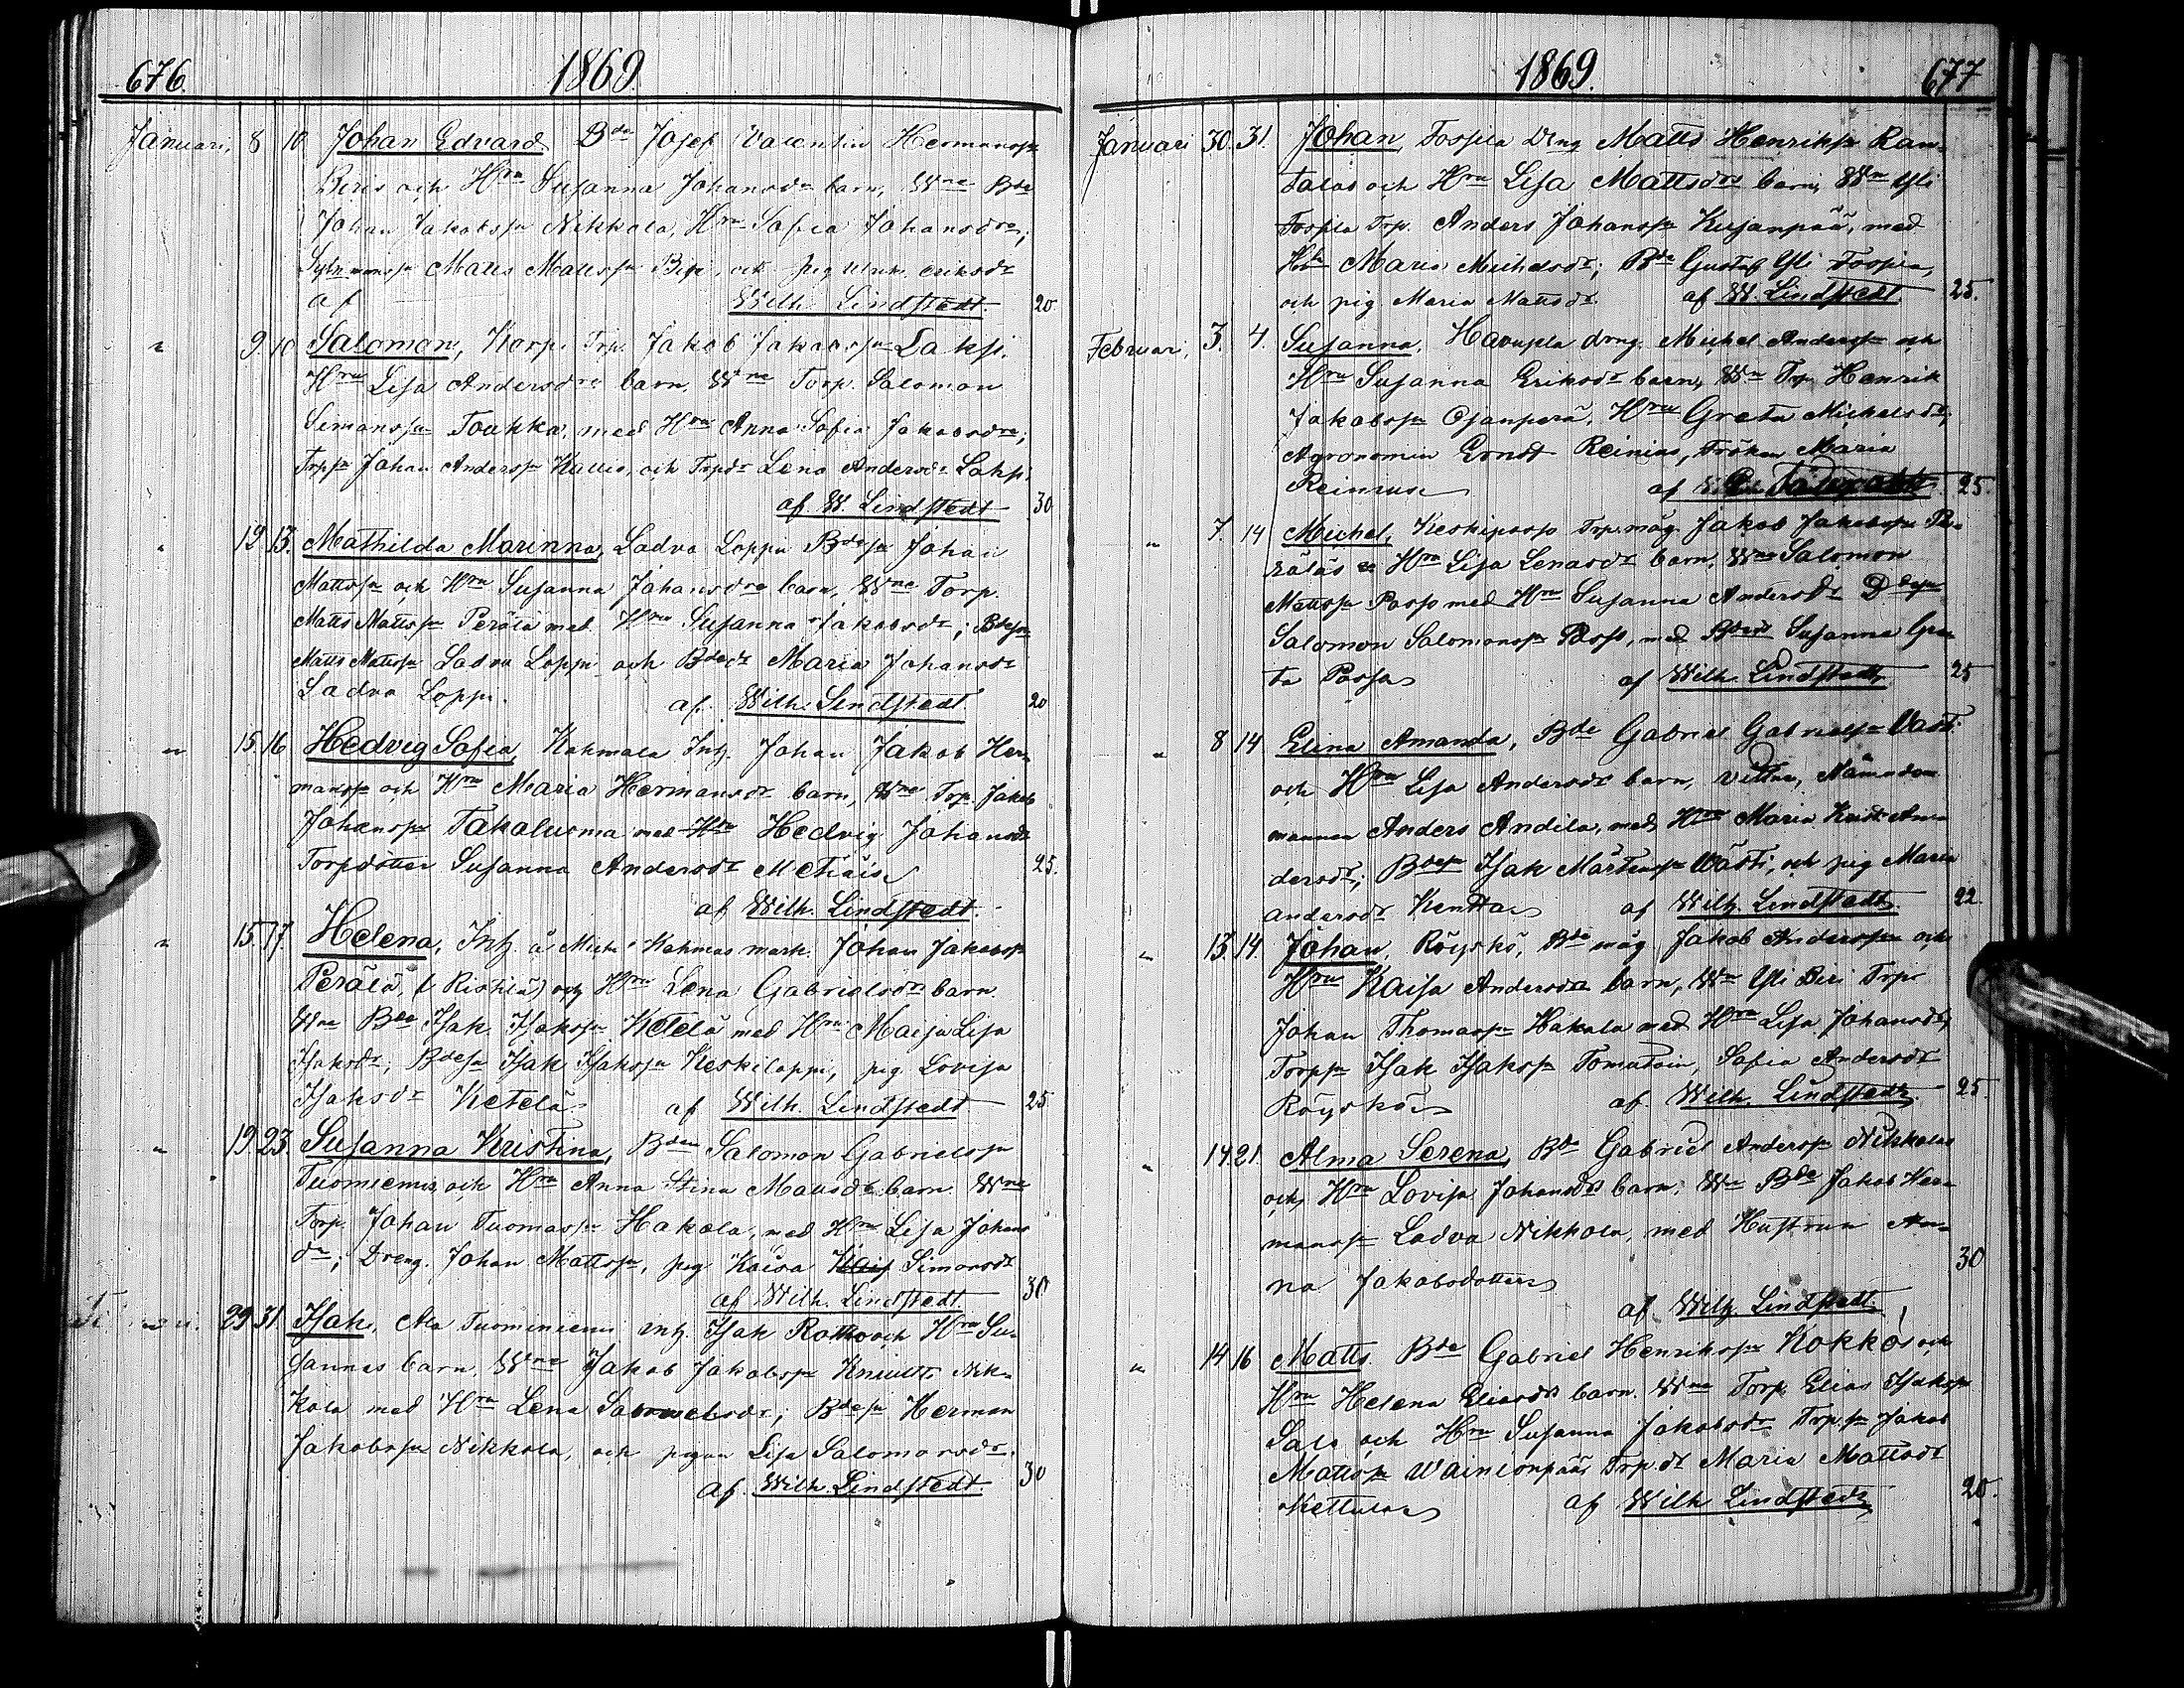 676. 1869.
Januari, 8 10 Johan Edvard Bde Josef Valentin Hermanssn
Biris och Hru Susanna Johansdrs barn, Wne Bde
Johan Jakobssn Nikkola, Hru Sofia Johansdr;
Matts Mattssn och pig Eriksdr
af Wilh. Lindstedt. 20
" 9. 10 Salomon, Korpi Trp. Jakob Jakobssn Laksi,
Hru Lisa Andersdrs barn, Wne Torp. Salomon
Simonssn Toukka, med Hru Anna Sofia Jakobsdr;
Trpsn Johan Anderssn Kallio, och Trpdr Lena Andersdr Laksi,
af W. Lindstedt 30
" 12 13. Mathilda Marinna, Ladva Loppi Bdesn Johan
Mattssn och Hru Susanna Johansdrs barn, Wne Torp.
Matts Mattssn Perälä med Hru Susanna Jakobsdr; Bdesn
Matts Mattssn Ladva Loppi och Bdedr Maria Johansdr
Ladva Loppi. af. Wilh. Lindstedt 20
" 15. 16 Hedvig Sofia, Kahmala Inh. Johan Jakob Her-
manssn och Hru Maria Hermansdr barn, Wne Trp. Jakob
Johanssn Takaluoma med Hru Hedvig Johansdr
Torpdotter Susanna Andersdr Metsäis 25.
af Wilh. Lindstedt.
" 15. 17. Helena, Inh. å Kahmas mark. Johan Jakobssn
Perälä, (Ristilä) och Hru Lena Gabrielsdrs barn.
Wne Bde Isak Isakssn Ketelä med Hru Maija Lisa
Isaksdr; Bdesn Isak Isakssn Keskiloppi, pig. Lovisa
Isaksdr Ketelä af Wilh. Lindstedt 25
" 19. 23. Susanna Kristina, Bden Salomon Gabrielssn
Tuomiemis och Hru Anna Stina Mattsdr barn. Wne
Torp. Johan Tuomassn Hakola, med Hru Lisa Johans
dr; Dreng. Johan Mattssn, pig Kaisa Simonsdr
af Wilh. Lindstedt 30
29 31. Isak, Ala Tuominiemi inh. Isak Rotko och Hru Su-
sannas barn, Wne Jakob Jakobssn Knivilts Nik-
kola med Hru Lena Samuelsdr; Bdesn Herman
Jakobssn Nikkola, och pigan Lisa Salomonsdr.
af. Wilh. Lindstedt. 30
1869. 677
Januari 30. 31. Johan, Fossila Dräng Matts Henrikssn Ran-
talas och Hru Lisa Mattsdrs barn, Wne Yli
Fossila Trp. Anders Johanssn Kujanpää, med
Hru Maria Michelsdr; Bde Gustaf Yli Fossila,
och pig Maria Mattsdr. af W. Lindstedt 25.
Februari, 3. 4. Susanna, Havupla dräng. Michel Anderssn och
Hru Susanna Eriksdr barn, Wne Trp. Henrik
Jakobssn Ojanperä, Hru Greta Michelsdr;
Agronomin Ernst Reinius, Fröken Maria
Reinius af 25.
" 7. 14 Michel, Keskiposso Trp. måg. Jakob Jakobssn Pe-
räläs Hru Lisa Lenasdr barn, Wne Salomon
Mattssn Posso med Hru Susanna Andersdr Bdesn
Salomon Salomonssn Posso, med Bdedr Susanna Gre-
ta Posso af Wilh. Lindstedt 25
" 8 14. Elina Amanda, Bde Gabriel Gabrielssn Västi
och Hru Lisa Andersdr barn, vittne, Nämndem
mannen Anders Andila, med Hru Maria Krist. An-
dersdr; Bdesn Isak Mårtenssn Västi, och pig Maria
Andersdr Kentta af Wilh. Lindstedt. 22.
" 13. 14. Johan, Röyskö, Bde måg. Jakob Anderssn och
Hru Kaisa Andersdrs barn, Wne Yli Biri Trp.
Johan Thomassn Hakala med Hru Lisa Johansdr,
Torpsn Isak Isakssn Tomutoin, Sofia Andersdr
Röyskö af. Wilh. Lindstedt 25.
" 14 21. Alma Serena, Bde Gabriel Anderssn Nikkolas
och Hru Lovisa Johansdrs barn, Wne Bde Jakob Her-
manssn Ladva Nikkola, med Hustrun An-
na Jakobsdotter 30
af. Wilh. Lindstedt,
" 14 16 Matts. Bde Gabriel Henrikssn Kokko och
Hru Helena Eliasdrs barn. Wne Torp. Elias Isakssn
Salo och Hru Susanna Jakobsdr Trp. sn Jakob
Mattssn Wainionpää Trp. dr Maria Mattsdr
Kettula af Wilh Lindstedt 20.